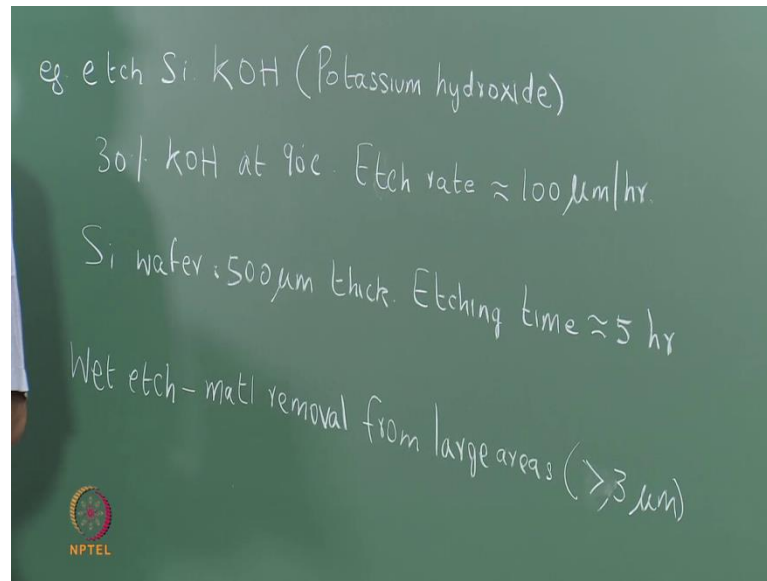 eg. etch Si. KOH (Potassium hydroxide)
30% KOH at 90°C. Etch rate ≈ 100 μm/hr.
Si wafer: 500 μm thick. Etching time ≈ 5 hr
Wet etch - matl removal from large areas (≥3 μm)
NPTEL